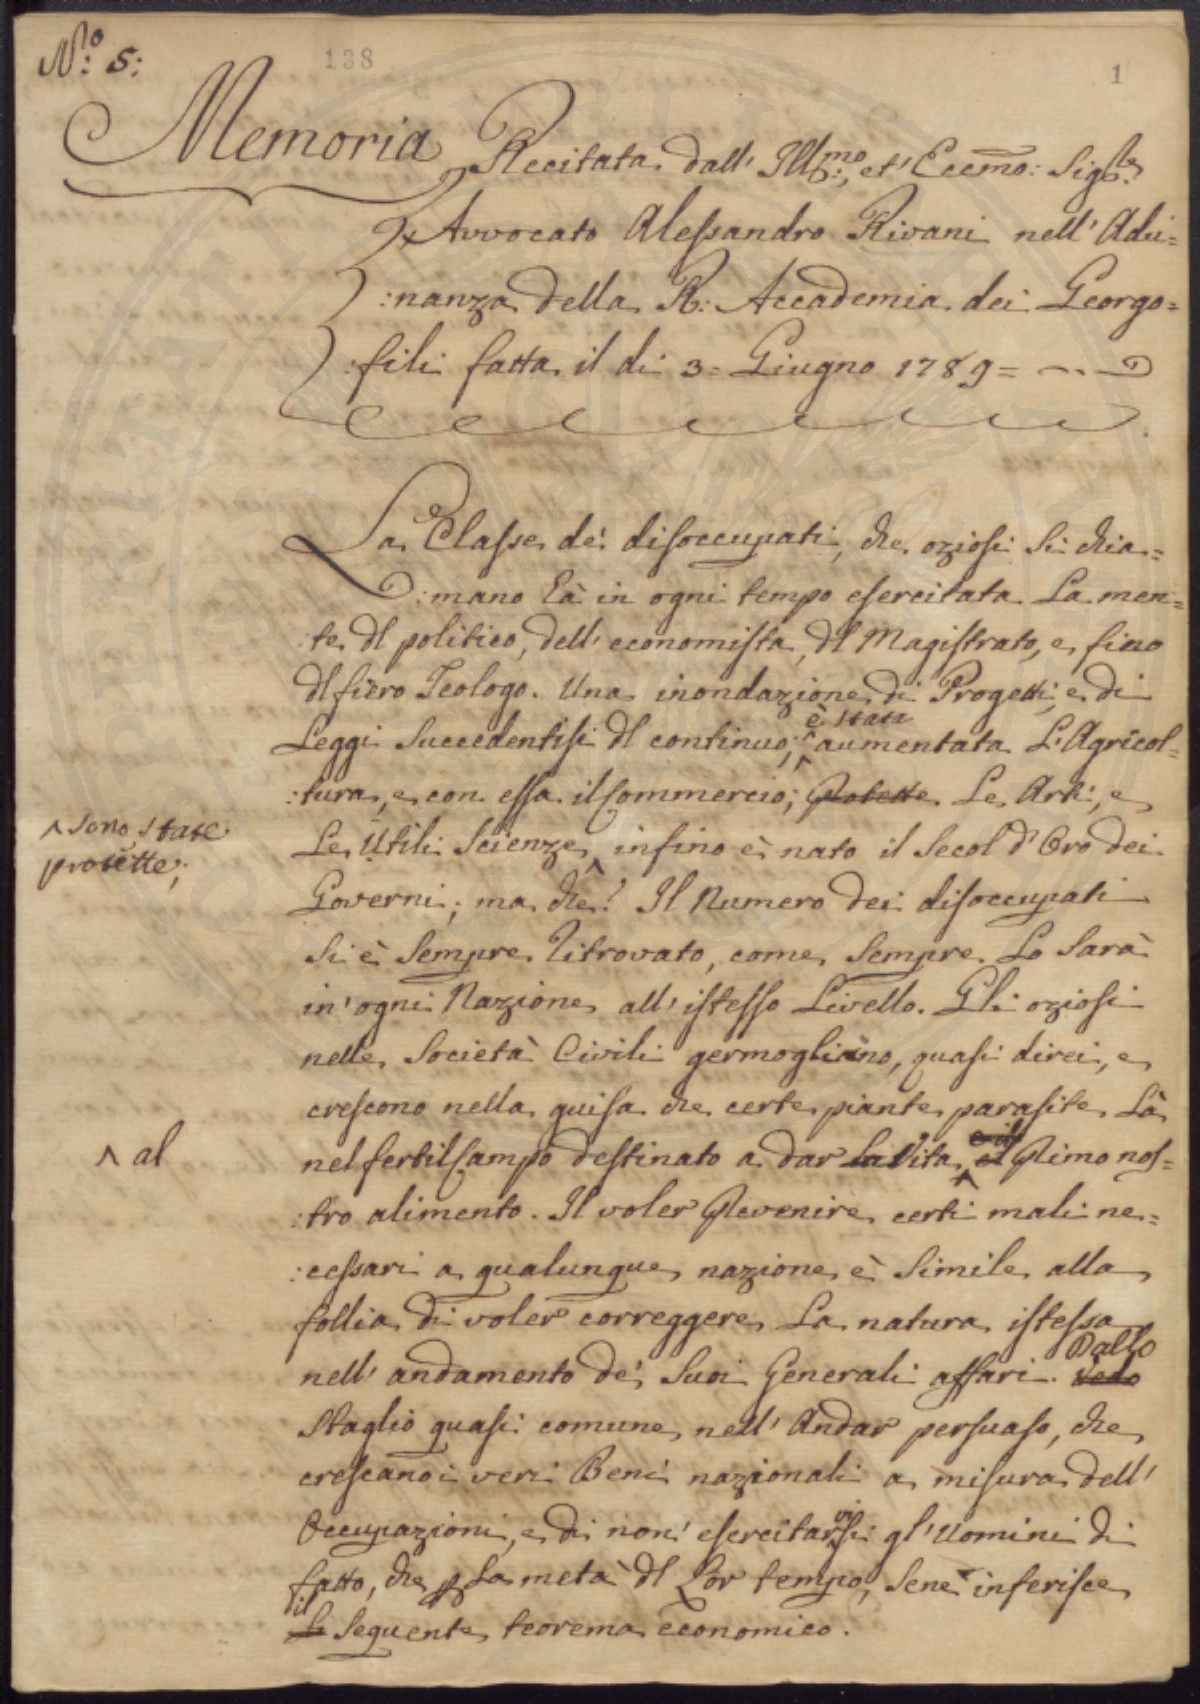 N.º 5:
138
1
Memoria Recitata dall' Ill.mo, et' Eccmo: Sig.re
Avvocato Alessandro Rivani nell' Adu=
:nanza della R: Accademia dei Georgo=
:fili fatta il di 3= Giugno 1789=
La Classe de' disoccupati, che oziosi si chia=
:mano hà in ogni tempo esercitata la men=
:te dl politico, dell' economista, dl Magistrato, e fino
dl fiero Teologo. Una inondazione di Progetti, e di
Leggi succedentisi dl continuo, ^ è stata aumentata l'Agricol=
:tura, e con essa il Commercio; Protette le Arti, e
le Utili Scienze ^, infino è nato il secol d'Oro dei
^ sono state
protette;
Governi; ma che? Il Numero dei disoccupati
si è sempre ritrovato, come sempre lo sarà
in' ogni Nazione all' istesso Livello. Gli oziosi
nelle Società Civili germogliano, quasi direi, e
crescono nella guisa che certe piante parasite là
nel fertil Campo destinato a dar la Vita, ^ e il Primo nos=
^ al
:tro alimento. Il voler Prevenire certi mali ne=
:cessari a qualunque nazione è simile alla
follia di voler correggere la natura istessa
nell' andamento de' suoi Generali affari. Vedo Dallo
sbaglio quasi comune nell' Andar persuaso, che
crescano i veri Beni nazionali a misura dell'
Occupazioni, e di non' esercitarvisi gl' Uomini di
fatto, che p la metà dl Lor tempo, sene inferisce
Le il seguente teorema economico.